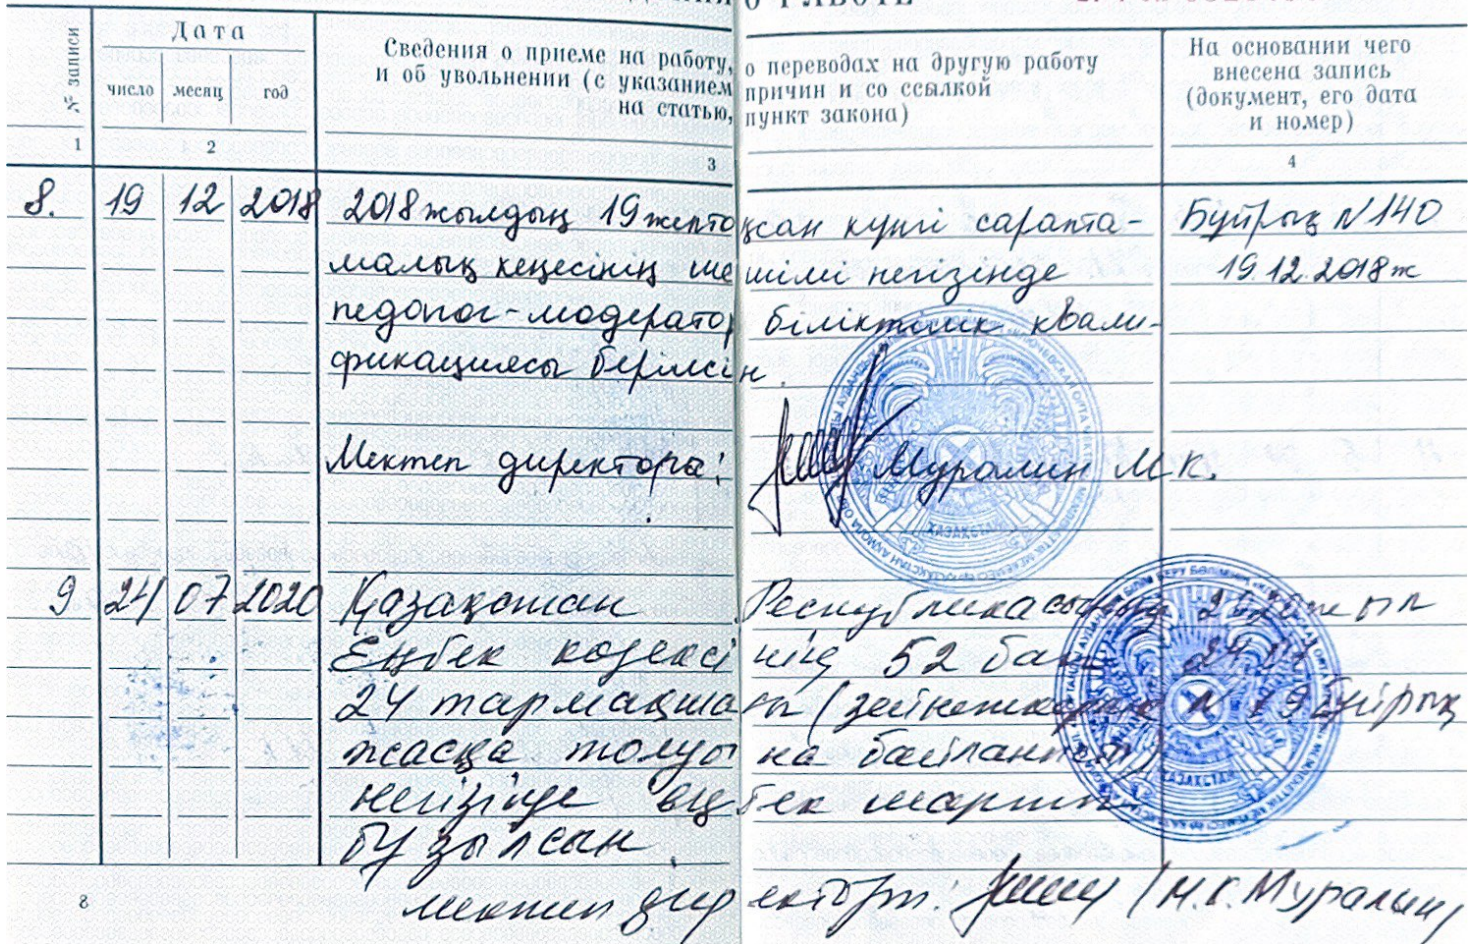 О РАБОТЕ
№ записи
Дата
число месяц год
Сведения о приеме на работу, о переводах на другую работу
и об увольнении (с указанием причин и со ссылкой
на статью, пункт закона)
На основании чего
внесена запись
(документ, его дата
и номер)
1 2 3 4
8. 19 12 2018 2018 жылдың 19 желтоқсан күнгі сарапта- Бұйрық №140
малық кеңесінің шешімі негізінде 19.12.2018ж
педагог-модератор біліктілік квали-
фикациясы берілсін.
Мектеп директоры: Муралин М.К.
9 24 07 2020 Қазақстан Республикасының 2020 жыл
Еңбек кодексі нің 52 бап 24.07
24 тармақшасы (зейнеткерлік № 29 бұйрық
жасқа толуына байланысты)
негізінде еңбек шарты
бұзылсын
мектеп директоры: / М.К. Муралин /
ҚАЗАҚСТАН
ҚАЗАҚСТАН
8